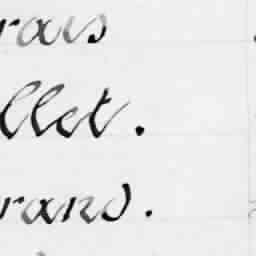 rais
llet.
rans.